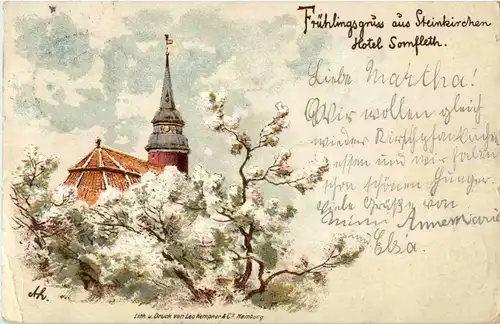 Frühlingsgruss aus Steinkirchen
Hotel Somfleth.
Liebe Martha!
Wir wollen gleich
wieder Kirschpfannkuchen
essen und wir haben
schon schönen Hunger.
Viele Grüße von
Annemarie
Elsa.
Ah.
Lith. u. Druck von Leo Kempner & Co. Hamburg.